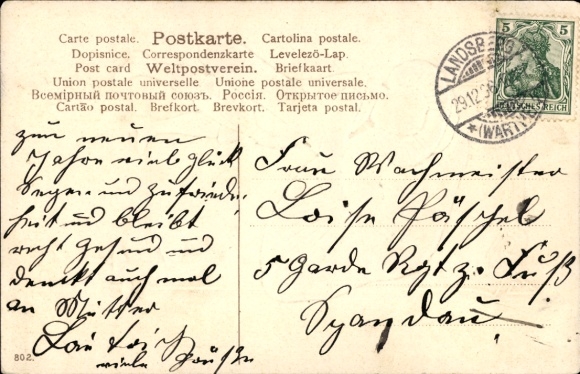 Carte postale. Postkarte. Cartolina postale.
Dopisnice. Correspondenzkarte Levelező-Lap.
Post card Weltpostverein. Briefkaart.
Union postale universelle Unione postale universale.
Всемірный почтовый союзъ. Россія. Открытое письмо.
Cartão postal. Brefkort. Brevkort. Tarjeta postal.
5 5
LANDSBERG
29.12
*(WARTHE)
DEUTSCHES REICH
zum neuen
Jahre viel Glück
Segen und Zufrieden
heit und bleibt
recht gesund und
denkt auch mal
an Mutter
viele Grüße
Frau Wachmeister
Loise Päschel
5 Garde Rgt z. Fuß
Spandau
802.